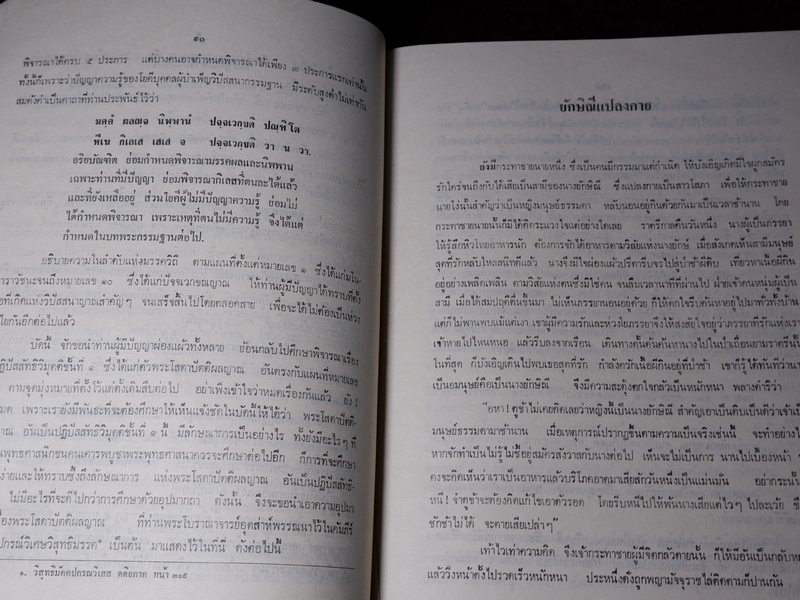 ๑๐
พิจารณาได้ครบ ๕ ประการ แต่บางคนอาจกำหนดพิจารณาได้เพียง ๓ ประการแรกเท่านั้น
ทั้งนี้ก็เพราะว่าปัญญาความรู้ของโยคีบุคคลผู้บำเพ็ญวิปัสสนากรรมฐาน มีระดับสูงต่ำไม่เท่ากัน
สมดังคำเป็นคาถาที่ท่านประพันธ์ไว้ว่า
มคฺคํ ผลญฺจ นิพฺพานํ ปจฺจเวกฺขติ ปณฺฑิโต
หีเน กิเลเส เสเส จ ปจฺจเวกฺขติ วา น วา.
อริยบัณฑิต ย่อมกำหนดพิจารณามรรคผลและนิพพาน
เฉพาะท่านที่มีปัญญา ย่อมพิจารณากิเลสที่ตนละได้แล้ว
และที่ยังเหลืออยู่ ส่วนโยคีผู้ไม่มีปัญญาความรู้ ย่อมไม่
ได้กำหนดพิจารณา เพราะเหตุที่ตนไม่มีความรู้ จึงได้แต่
กำหนดในบทพระกรรมฐานต่อไป.
อธิบายความในลำดับแห่งมรรควิถี ตามแผนที่ตั้งแต่หมายเลข ๑ ซึ่งได้แก่มโน-
ทวาราวัชชนะจนถึงหมายเลข ๑๐ ซึ่งได้แก่ปัจจเวกขณญาณ ให้ท่านผู้มีปัญญาได้ทราบที่ตั้ง
ที่เกิดแห่งวิปัสสนาญาณสำคัญๆ จนเสร็จสิ้นไปโดยตลอดสาย เพื่อจะได้ไม่ต้องเป็นห่วง
ใยกันอีกต่อไปแล้ว
บัดนี้ จักขอนำท่านผู้มีปัญญาผ่องแผ้วทั้งหลาย ย้อนกลับไปศึกษาพิจารณาเรื่อง
ปฏิปัสสัทธิวิมุตติขั้นที่ ๑ ซึ่งได้แก่ตัวพระโสดาปัตติผลญาณ อันตรงกับแผนที่หมายเลข
ตามจุดมุ่งหมายที่ตั้งไว้แต่ดั้งเดิมสืบต่อไป อย่าเพิ่งเข้าใจว่าหมดเรื่องกันแล้ว ยัง!
เพราะเรายังมีพันธะที่จะต้องศึกษาให้เห็นแจ้งชัดในบัดนี้ให้ได้ว่า พระโสดาปัตติ-
ผลญาณ อันเป็นปฏิปัสสัทธิวิมุตติขั้นที่ ๑ นี้ มีลักษณาการเป็นอย่างไร ทั้งยังมีอะไรๆ ที่
พุทธศาสนิกชนคนเคารพบูชาพระพุทธศาสนาควรจะศึกษาต่อไปอีก ก็การที่จะศึกษา
ง่ายและให้ทราบซึ้งถึงลักษณาการ แห่งพระโสดาปัตติผลญาณ อันเป็นปฏิปัสสัทธิ-
ไม่มีอะไรที่จะดีไปกว่าการศึกษาด้วยอุปมากถา ดังนั้น จึงจะขอนำเอาความอุปมา
เรื่องพระโสดาปัตติผลญาณ ที่ท่านพระโบราณาจารย์อุตส่าห์พรรณนาไว้ในคัมภีร์
ปกรณ์วิเศษวิสุทธิมรรค* เป็นต้น มาแสดงไว้ในที่นี้ ดังต่อไปนี้
๑. วิสุทธิมัคคปกรณวิเสส ตติยภาค หน้า ๓๐๙
ยักษิณีแปลงกาย
ยังมีกระทาชายนายหนึ่ง ซึ่งเป็นคนมีกรรมมาแต่กำเนิด ให้บังเอิญเกิดมีใจผูกสมัคร
รักใคร่จนถึงกับได้เสียเป็นสามีของนางยักษิณี ซึ่งแปลงกายเป็นสาวโสภา เพื่อให้กระทาชาย
นายโง่นั้นสำคัญว่าเป็นหญิงมนุษย์ธรรมดา หลับนอนอยู่กินด้วยกันมาเป็นเวลาช้านาน โดย
กระทาชายนายนั้นก็มิได้คิดระแวงใจแต่อย่างใดเลย ราตรีกาลคืนวันหนึ่ง นางผู้เป็นภรรยา
ให้รู้สึกหิวโหยอาหารนัก ต้องการจักได้อาหารตามวิสัยแห่งนางยักษ์ เมื่อสังเกตเห็นสามีมนุษย์
สุดที่รักหลับใหลสนิทดีแล้ว นางจึงมีใจผ่องแผ้วปรีดารีบจรไปสู่ป่าช้าผีดิบ เที่ยวหาเนื้อผีกิน
อยู่อย่างเพลิดเพลิน ตามวิสัยแห่งตนซึ่งมิใช่คน จนลืมเวลานาทีที่ผ่านไป ฝ่ายเจ้าคนหนุ่มผู้เป็น
สามี เมื่อได้สมปฤดีตื่นขึ้นมา ไม่เห็นภรรยานอนอยู่ด้วย ก็ให้ตกใจรีบค้นหาอยู่ไปมาทั่วทั้งบ้าน
แต่ก็ไม่พานพบแม้แต่เงา เขาผู้มีความรักและห่วงใยภรรยาจึงให้สงสัยใจอยู่ว่าภรรยาที่รักแห่งเรา
เจ้าหายไปไหนหนอ แล้วรีบลงจากเรือน เดินทางดั้นด้นค้นหานางไปในป่าเถื่อนยามราตรีนั้น
ในที่สุด ก็บังเอิญเดินไปพบเธอสุดที่รัก กำลังควักเนื้อผีกินอยู่ที่ป่าช้า เขาก็รู้ได้ทันทีว่านาง
เป็นอมนุษย์คือเป็นนางยักษิณี จึงมีความสะดุ้งตกใจกลัวเป็นหนักหนา พลางดำริว่า
"อหา! กูช้าไม่เคยคิดเลยว่าหญิงนี้เป็นนางยักษิณี สำคัญเอาเป็นดิบเป็นดีว่าเจ้าเป็น
มนุษย์ธรรมดามาช้านาน เมื่อเหตุการณ์ปรากฏขึ้นตามความเป็นจริงเช่นนี้ จะทำอย่างไร
หากจักทำเป็นไม่รู้ไม่ชี้อยู่สมัครสังวาสกับนางต่อไป เห็นจะไม่เป็นการ นานไปเบื้องหน้า
คงจะคิดเห็นว่าเราเป็นอาหารแล้วบริโภคอาตมาเสียสักวันหนึ่งเป็นแม่นมั่น อย่ากระนั้น
หนี! จำกูข้าจะต้องคิดแก้ไขเอาตัวรอด โดยรีบหนีไปให้พ้นนางเสียแต่ไวๆ ไปละเว้ย
ชักช้าไม่ได้ จะตายเสียเปล่าๆ"
เท่าไวเท่าความคิด จึงเจ้ากระทาชายผู้มีจิตกลัวตายนั้น ก็ให้มีอันเป็นกลับหน้า
แล้ววิ่งหน้าตั้งไปรวดเร็วหนักหนา ประหนึ่งดังถูกพญามัจจุราชไล่ติดตามก็ปานกัน